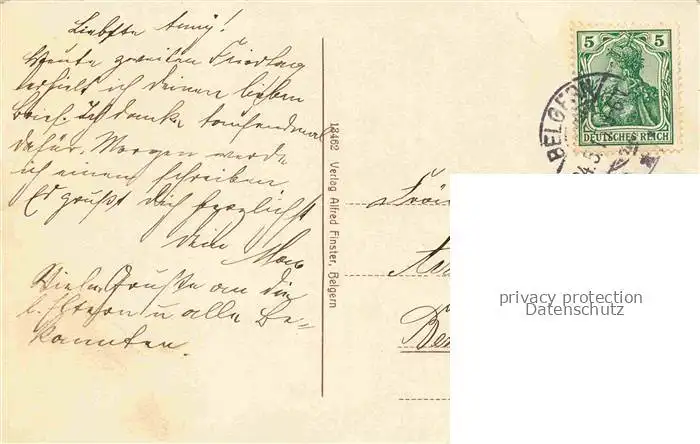 Liebste Anny!
Heute zweiten Friedtag
erhielt ich deinen lieben
Brief. Ich danke tausendmal
dafür. Morgen werde
ich einen schreiben
Es grüßt Dich herzlichst
dein Max
Viele Grüße an die
l. Eltern u alle Be-
kannten.
18462 Verlag Alfred Finster, Belgern
5 5
DEUTSCHES REICH
BELGERN
24.5
privacy protection
Datenschutz